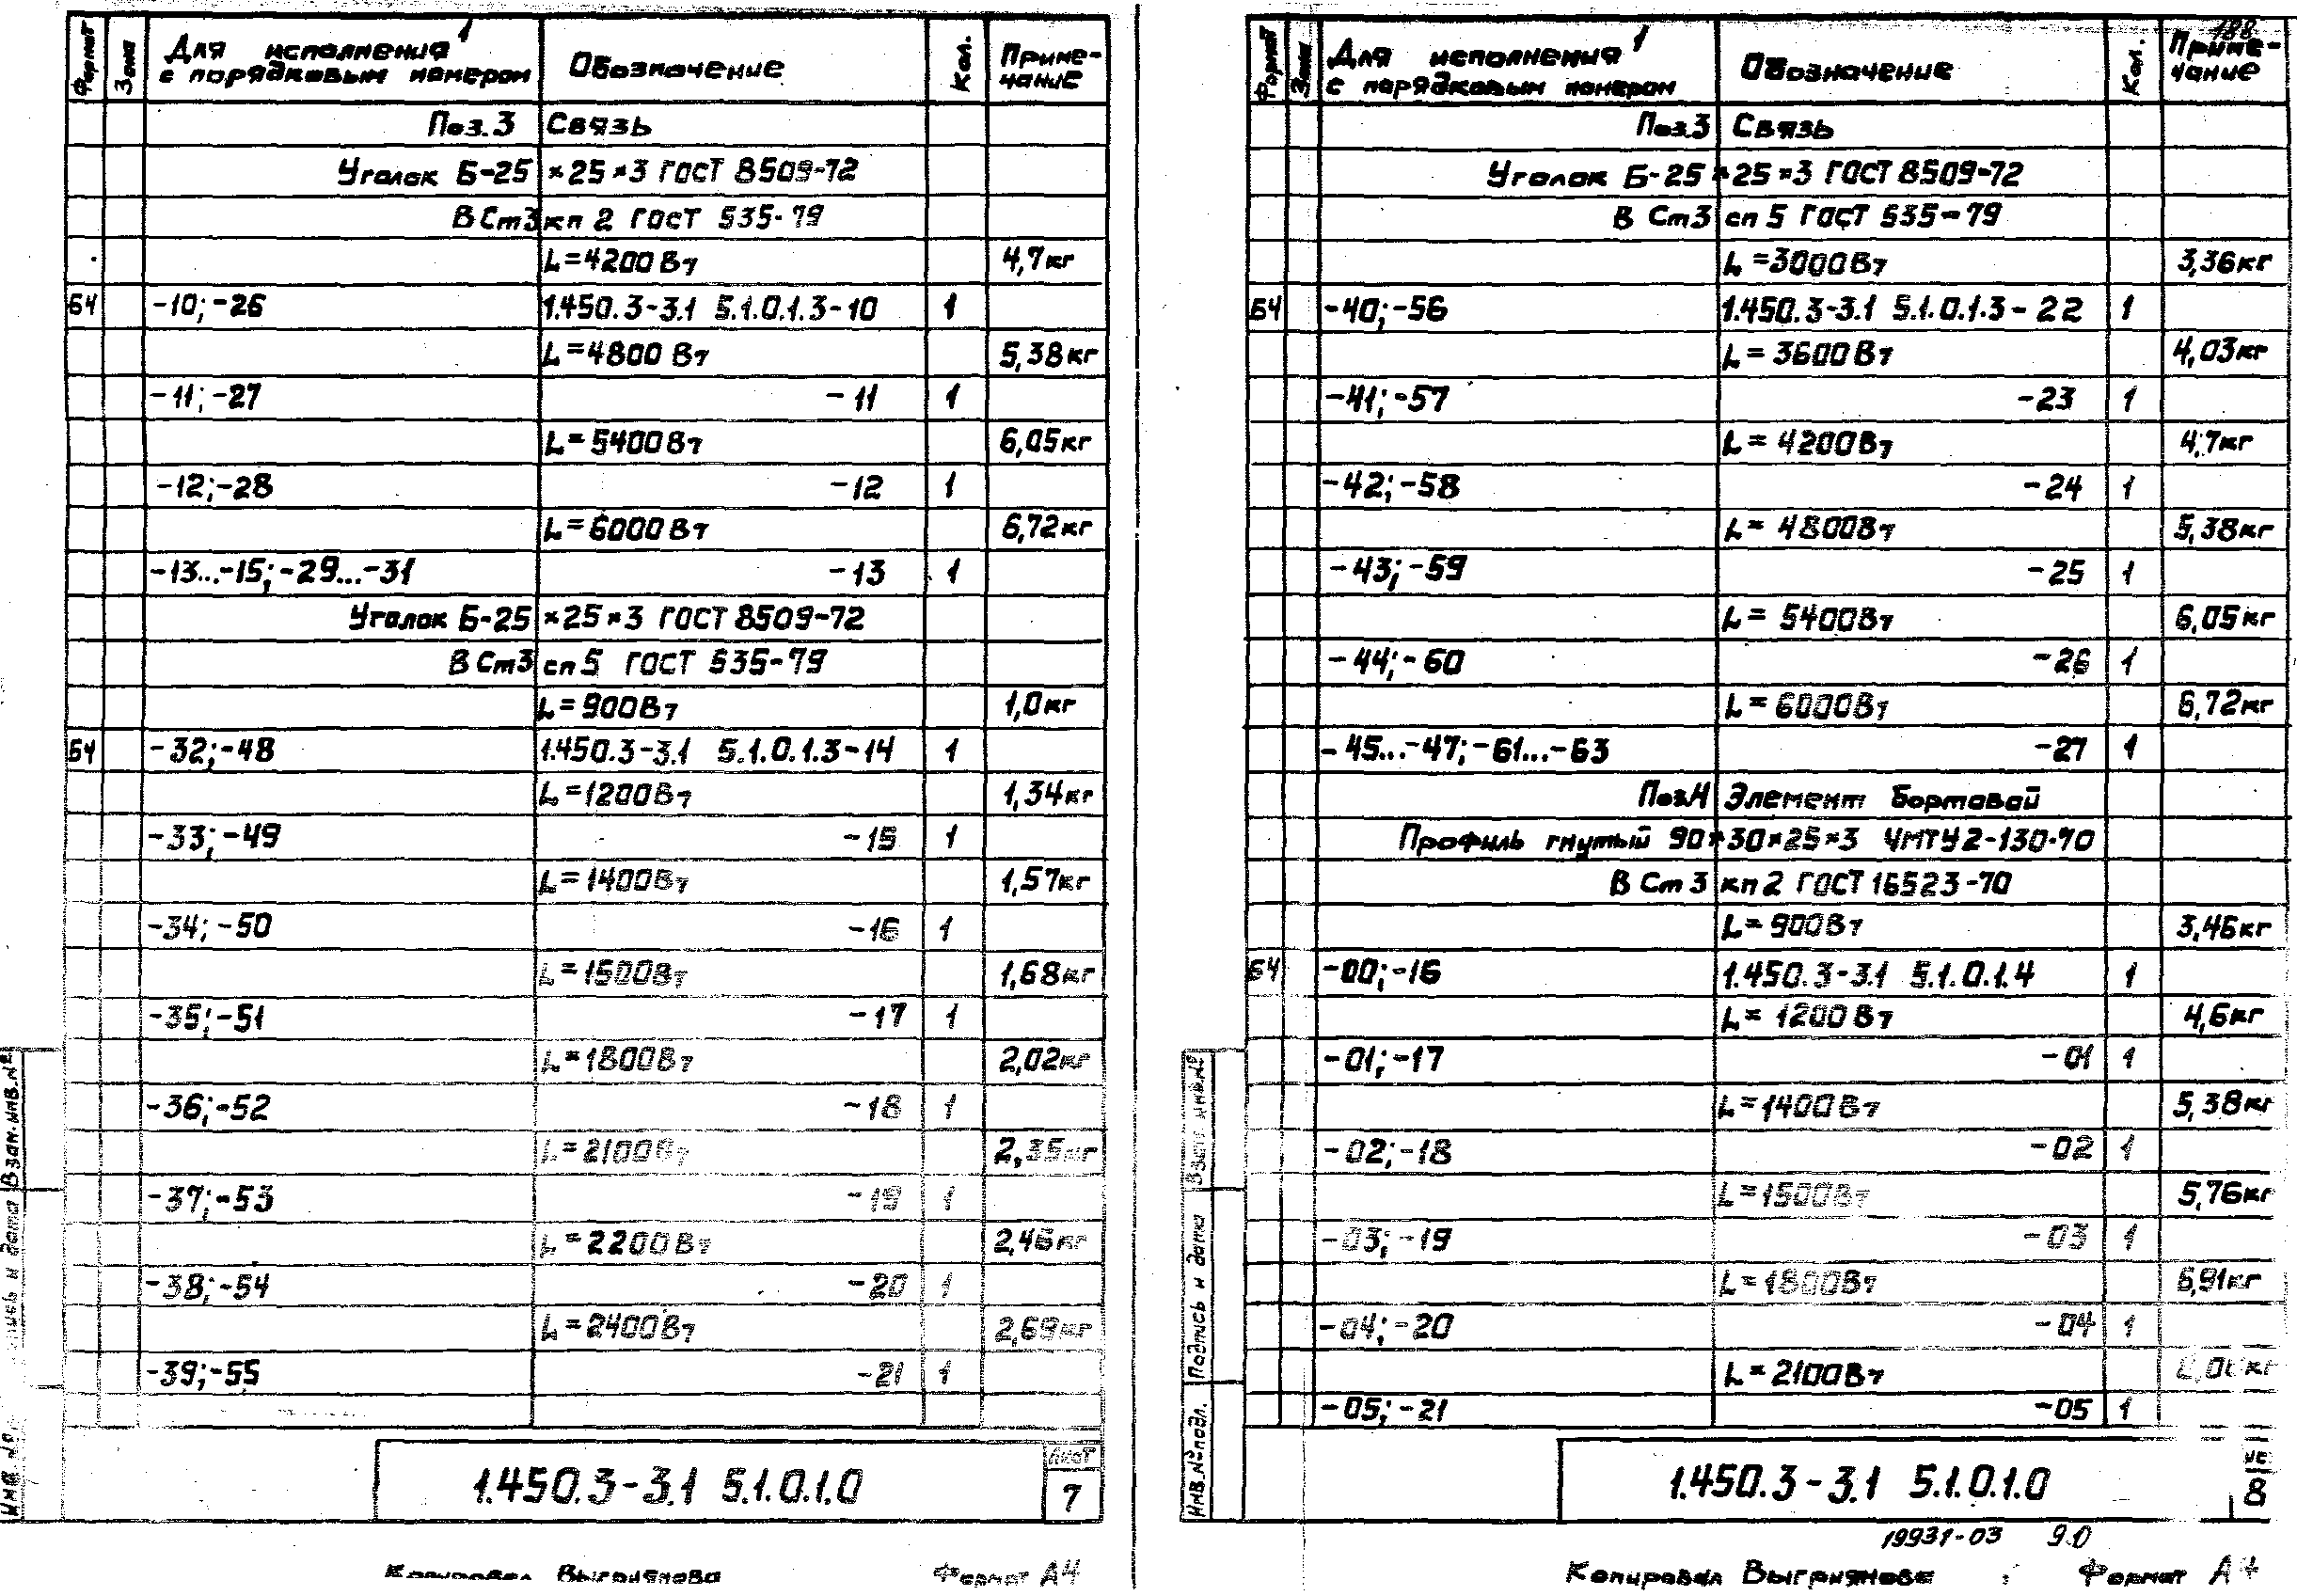 Формат
Зона
Для исполнения 1
с порядковым номером
Обозначение
Кол.
Приме-
чание
Поз. 3 Связь
Уголок Б-25×25×3 ГОСТ 8509-72
В Ст3 кп 2 ГОСТ 535-79
L=4200 Вт 4,7кг
Б4 -10; -26 1.450.3-3.1 5.1.0.1.3-10 1
L=4800 Вт 5,38кг
-11; -27 -11 1
L=5400 Вт 6,05кг
-12; -28 -12 1
L=6000 Вт 6,72кг
-13...-15; -29...-31 -13 1
Уголок Б-25×25×3 ГОСТ 8509-72
В Ст3 сп 5 ГОСТ 535-79
L=900 Вт 1,0кг
Б4 -32; -48 1.450.3-3.1 5.1.0.1.3-14 1
L=1200 Вт 1,34кг
-33; -49 -15 1
L=1400 Вт 1,57кг
-34; -50 -16 1
L=1500 Вт 1,68кг
-35; -51 -17 1
L=1800 Вт 2,02кг
-36; -52 -18 1
L=2100 Вт 2,35кг
-37; -53 -19 1
L=2200 Вт 2,46кг
-38; -54 -20 1
L=2400 Вт 2,69кг
-39; -55 -21 1
Взам. инв. №
и дата
Инв. №
1.450.3-3.1 5.1.0.1.0
Лист
7
Копировал Выгриянова Формат А4
188
Формат
Зона
Для исполнения 1
с порядковым номером
Обозначение
Кол.
Приме-
чание
Поз.3 Связь
Уголок Б-25×25×3 ГОСТ 8509-72
В Ст3 сп 5 ГОСТ 535-79
L=3000 Вт 3,36кг
Б4 -40; -56 1.450.3-3.1 5.1.0.1.3-22 1
L=3600 Вт 4,03кг
-41; -57 -23 1
L=4200 Вт 4,7кг
-42; -58 -24 1
L=4800 Вт 5,38кг
-43; -59 -25 1
L=5400 Вт 6,05кг
-44; -60 -26 1
L=6000 Вт 6,72кг
-45...-47; -61...-63 -27 1
Поз.4 Элемент бортовой
Профиль гнутый 90×30×25×3 ЧМТУ 2-130-70
В Ст 3 кп 2 ГОСТ 16523-70
L=900 Вт 3,46кг
Б4 -00; -16 1.450.3-3.1 5.1.0.1.4 1
L=1200 Вт 4,6кг
-01; -17 -01 1
L=1400 Вт 5,38кг
-02; -18 -02 1
L=1500 Вт 5,76кг
-03; -19 -03 1
L=1800 Вт 6,91кг
-04; -20 -04 1
L=2100 Вт
-05; -21 -05 1
Взам. инв. №
Подпись и дата
Инв. № подл.
1.450.3-3.1 5.1.0.1.0
8
19931-03 90
Копировал Выгриянова Формат А4